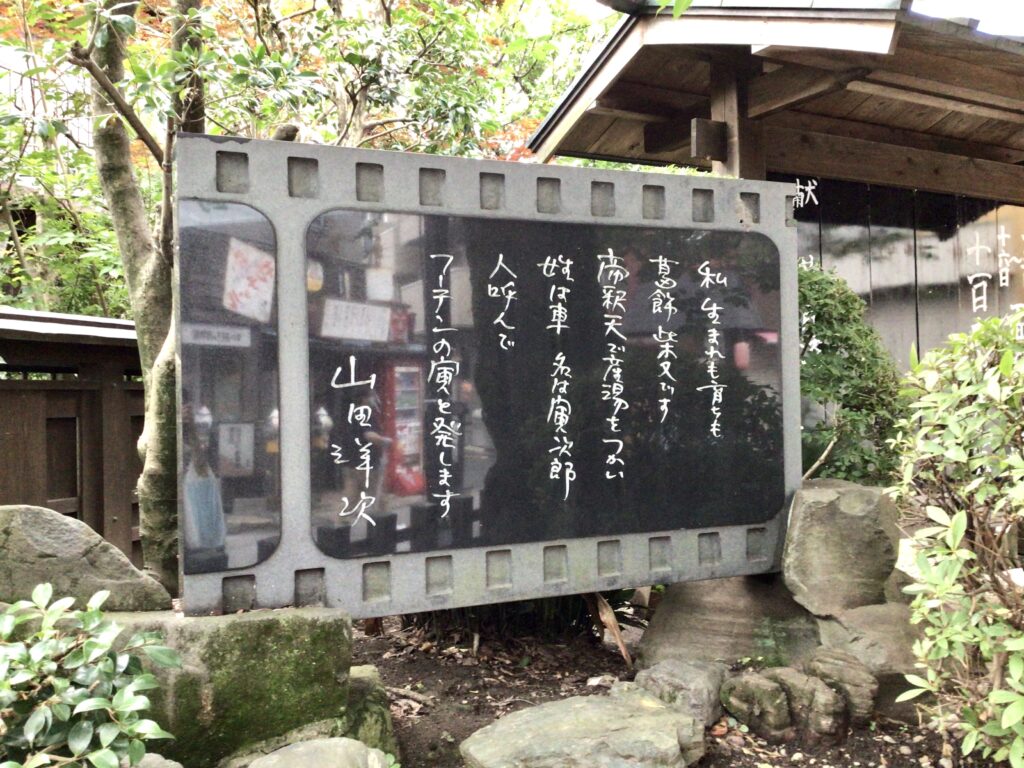 私 生まれも育ちも
葛飾 柴又です
帝釈天で産湯をつかい
姓は車 名は寅次郎
人呼んで
フーテンの寅と発します
山田洋次
献